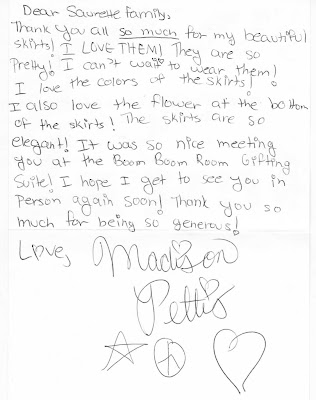 Dear Saurette Family,
Thank you all so much for my beautiful
skirts! I LOVE THEM! They are so
Pretty! I can't wait to wear them!
I love the colors of the skirts!
I also love the flower at the bottom
of the skirts! The skirts are so
elegant! It was so nice meeting
you at the Boom Boom Room Gifting
Suite! I hope I get to see you in
Person again soon! Thank you so
much for being so generous!
Love, Madison
Pettis